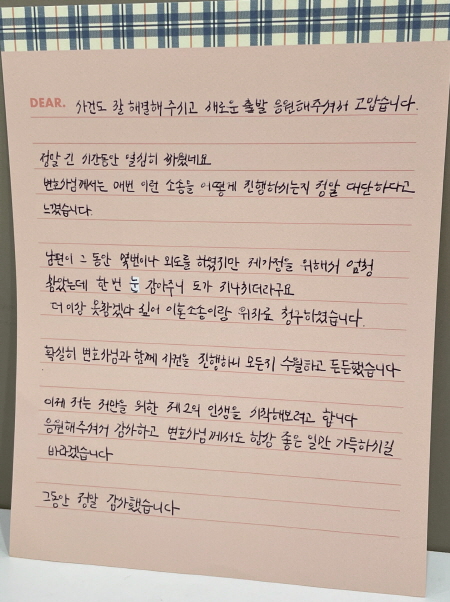 DEAR. 사건도 잘 해결해 주시고 새로운 출발 응원해주셔서 고맙습니다.
정말 긴 시간동안 열심히 싸웠네요
변호사님께서는 매번 이런 소송을 어떻게 진행하시는지 정말 대단하다고
느꼈습니다.
남편이 그 동안 몇번이나 외도를 하였지만 제가정을 위해서 엄청
참았는데 한 번 눈 감아주니 도가 지나치더라구요
더 이상 못참겠다 싶어 이혼소송이랑 위자료 청구하였습니다.
확실히 변호사님과 함께 사건을 진행하니 모든지 수월하고 든든했습니다
이제 저는 저만을 위한 제2의 인생을 시작해보려고 합니다
응원해주셔서 감사하고 변호사님께서도 항상 좋은 일만 가득하시길
바라겠습니다
그동안 정말 감사했습니다